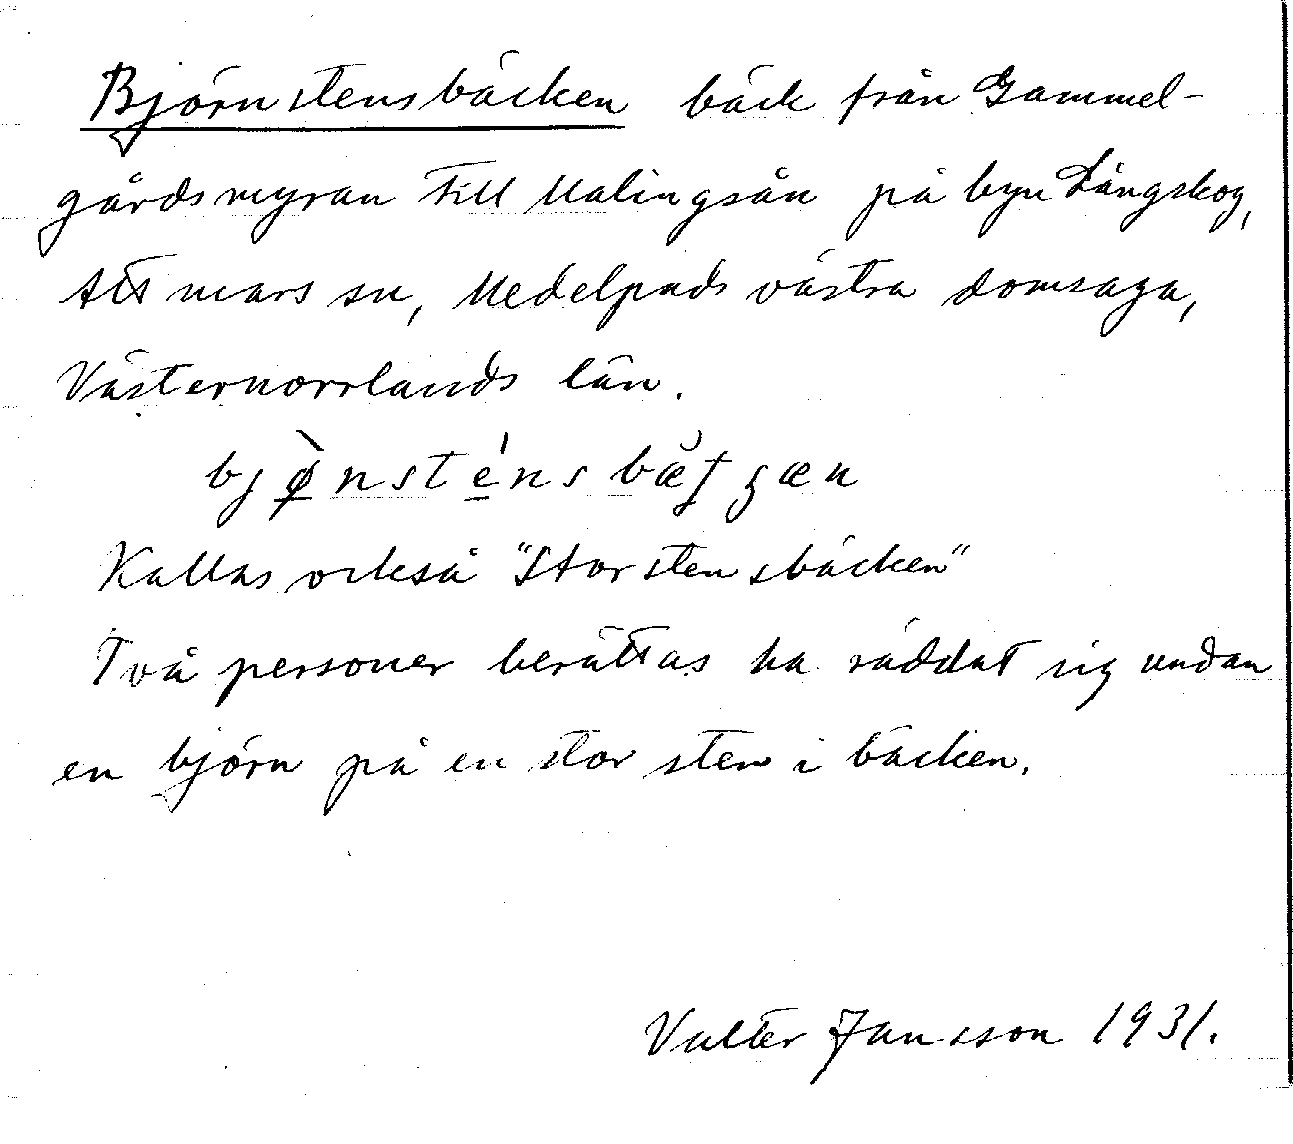 Björnstensbäcken bäck från Gammel-
gårdsmyran till Malingsån på byn Långskog,
Attmars sn, Medelpads västra domsaga,
Västernorrlands län.
bjø̀nsténsbæ̆ʈʂæn
Kallas också "Storstensbäcken"
Två personer berättas ha räddat sig undan
en björn på en stor sten i bäcken.
Valter Jansson 1931.